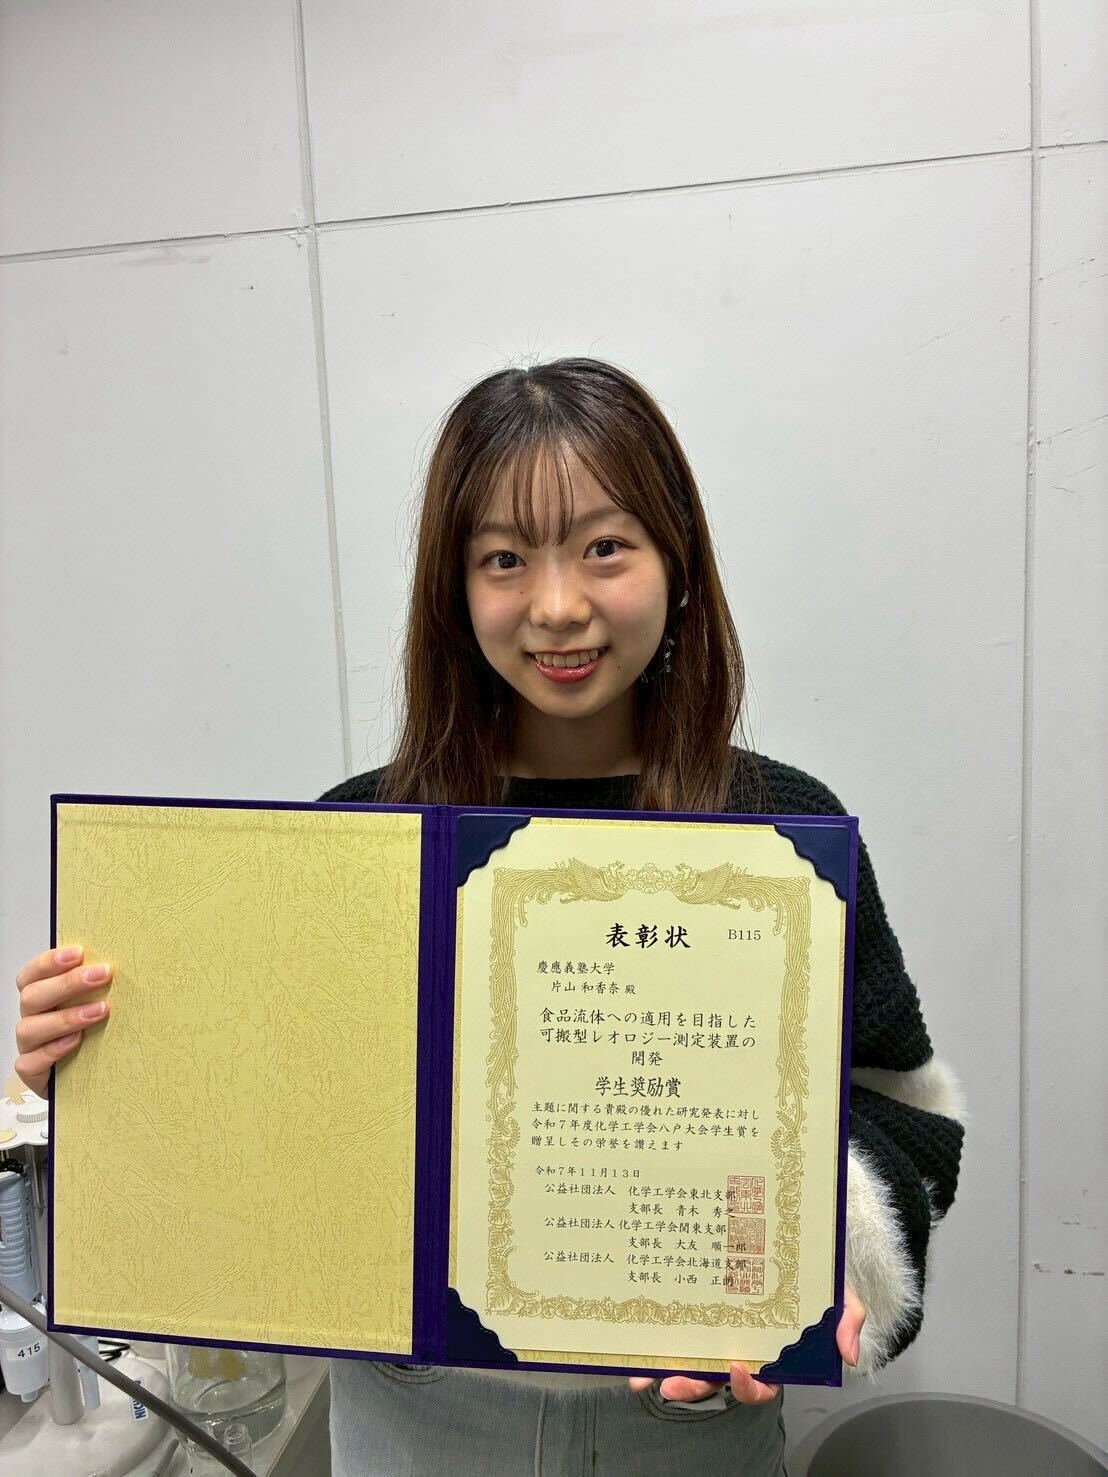 表彰状
B115
慶應義塾大学
片山 和香奈 殿
食品流体への適用を目指した
可搬型レオロジー測定装置の
開発
学生奨励賞
主題に関する貴殿の優れた研究発表に対し
令和7年度化学工学会八戸大会学生賞を
贈呈しその栄誉を讃えます
令和7年11月13日
公益社団法人 化学工学会東北支部
支部長 青木 秀之
公益社団法人 化学工学会関東支部
支部長 大友 順一郎
公益社団法人 化学工学会北海道支部
支部長 小西 正朗
415
NICH